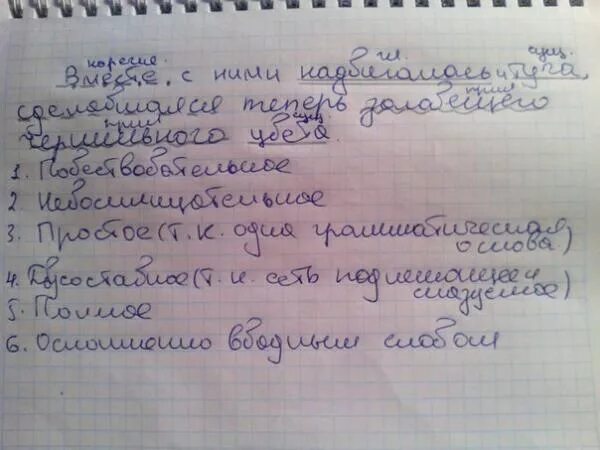 наречие гл. сущ.
Вместе с ними надвигалась и туча,
сделавшаяся теперь зловещего прил.
прил. сущ.
чернильного цвета.
1. Повествовательное
2 Невосклицательное
3. Простое (т.к. одна грамматическая
основа)
4. Двусоставное (т.к. есть подлежащее и
сказуемое)
5. Полное
6. Осложнено вводным словом